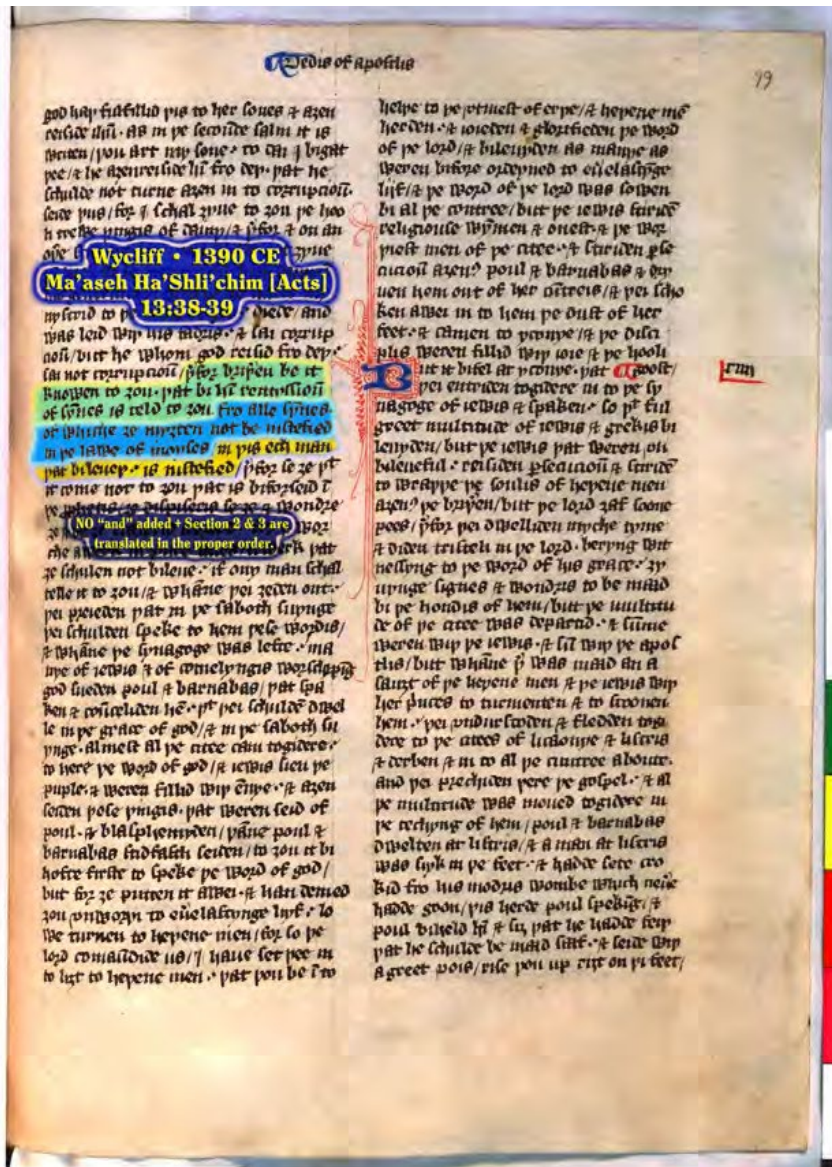 Dedis of apostlis
99
god haþ fulfillid þis to her sones ⁊ aȝen
reiside ihū · as in þe secoūde salm it is
writen / þou art my sone · to dai I bigat
þee / ⁊ he aȝenreiside hī fro deþ · þat he
schulde not turne aȝen in to corrupcioū ·
seide þus / for I schal ȝyue to ȝou þe hoo
li trewe þingis of
ȝyue
Wycliff • 1390 CE
Ma'aseh Ha'Shli'chim [Acts]
13:38-39
diede / and
was leid wiþ his fadris · ⁊ sai corrup
cioū / but he whom god reisid fro deþ ·
sai not corrupcioū / þfor briþen be it
knowen to ȝou · þat bi hī remyssioū
of synnes is teld to ȝou fro alle synnes
of whiche ȝe myȝten not be iustefied
in þe lawe of moyses in þis ech man
þat bileueþ · is iustefied / þfor se ȝe þt
it come not to ȝou þat is biforseid ī
þe
wondre
NO "and" added + Section 2 & 3 are
translated in the proper order.
þat
ȝe schulen not bileue · if ony man schal
telle it to ȝou / ⁊ whāne þei ȝeden out ·
þei preieden þat in þe saboth suynge
þei schulden speke to hem þese wordis /
⁊ whāne þe synagoge was lefte · ma
nye of iewis ⁊ of comelyngis worschipīg
god sueden poul ⁊ barnabas / þat spa
ken ⁊ coūceliden hē · þt þei schuldē dwel
le in þe grace of god / ⁊ in þe saboth su
ynge · almest al þe citee cam togidere ·
to here þe word of god / ⁊ iewis sien þe
puple · ⁊ weren fillid wiþ enuye · ⁊ aȝen
seiden þose þingis · þat weren seid of
poul · ⁊ blasphemyden / þāne poul ⁊
barnabas stidfastli seiden / to ȝou it bi
hofte firste to speke þe word of god /
but for ȝe putten it awei · ⁊ han demed
ȝou vnworþi to euelastynge lyf · lo
we turnen to heþene men / for so þe
lord comaūdide us / I haue set þee in
to liȝt to heþene men · þat þou be ī to
helþe to þe vtmest of erþe / ⁊ heþene mē
herden · ⁊ ioieden ⁊ glorifieden þe word
of þe lord / ⁊ bileuyden as manye as
weren bifore ordeyned to euelastynge
lijf / ⁊ þe word of þe lord was sowen
bi al þe contree / but þe iewis stiridē
religiouse wymen ⁊ onest · ⁊ þe wor
þiest men of þe citee · ⁊ stiriden pse
cucioū aȝens poul ⁊ barnabas ⁊ dry
uen hem out of her cūtreis / ⁊ þei scho
ken awei in to hem þe dust of her
feet · ⁊ camen to yconye / ⁊ þe disci
plis weren fillid wiþ ioie ⁊ þe hooli
goost /
xiiii
But it bifel at yconye · þat
þei entriden togidere in to þe sy
nagoge of iewis ⁊ spaken · so þt ful
greet multitude of iewis ⁊ grekis bi
leuyden / but þe iewis þat weren vn
bileueful · reisiden psecucioū ⁊ stiridē
to wraþþe þe soulis of heþene men
aȝens þe briþen / but þe lord ȝaf soone
pees / þfor þei dwelliden myche tyme
⁊ diden tristeli in þe lord · beryng wit
nessyng to þe word of his grace · ȝy
uynge signes ⁊ wondris to be maad
bi þe hondis of hem / but þe multitu
de of þe citee was departid · ⁊ summe
weren wiþ þe iewis · ⁊ sum wiþ þe apos
tlis / but whāne þ was maad an a
sauȝt of þe heþene men ⁊ þe iewis wiþ
her princes to turmenten ⁊ to stoonen
hem · þei vndurstoden ⁊ fledden togi
dere to þe citees of licaonye ⁊ listris
⁊ derben ⁊ in to al þe cuntree aboute ·
and þei prechiden þere þe gospel · ⁊ al
þe multitude was moued togidere in
þe techyng of hem / poul ⁊ barnabas
dwelten at listris / ⁊ a man at listris
was syik in þe feet · ⁊ hadde sete cro
kid fro his modris wombe which neue
hadde goon / þis herde poul spekīg / ⁊
poul biheld hī ⁊ siȝ þat he hadde feiþ
þat he schulde be maad saaf · ⁊ seide wiþ
a greet vois / rise þou up riȝt on þi feet /